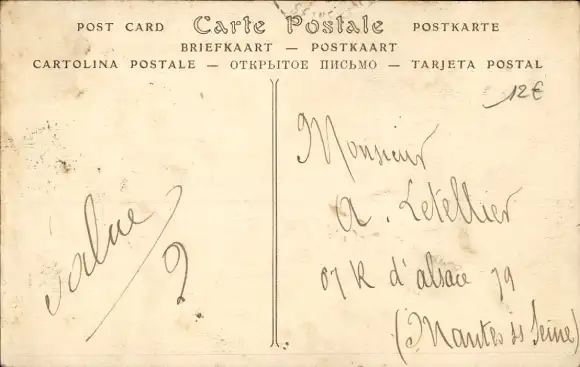 POST CARD Carte Postale POSTKARTE
BRIEFKAART — POSTKAART
CARTOLINA POSTALE — ОТКРЫТОЕ ПИСЬМО — TARJETA POSTAL
12€
Monsieur
A. Letellier
R d'alsace 79
(Mantes Seine)